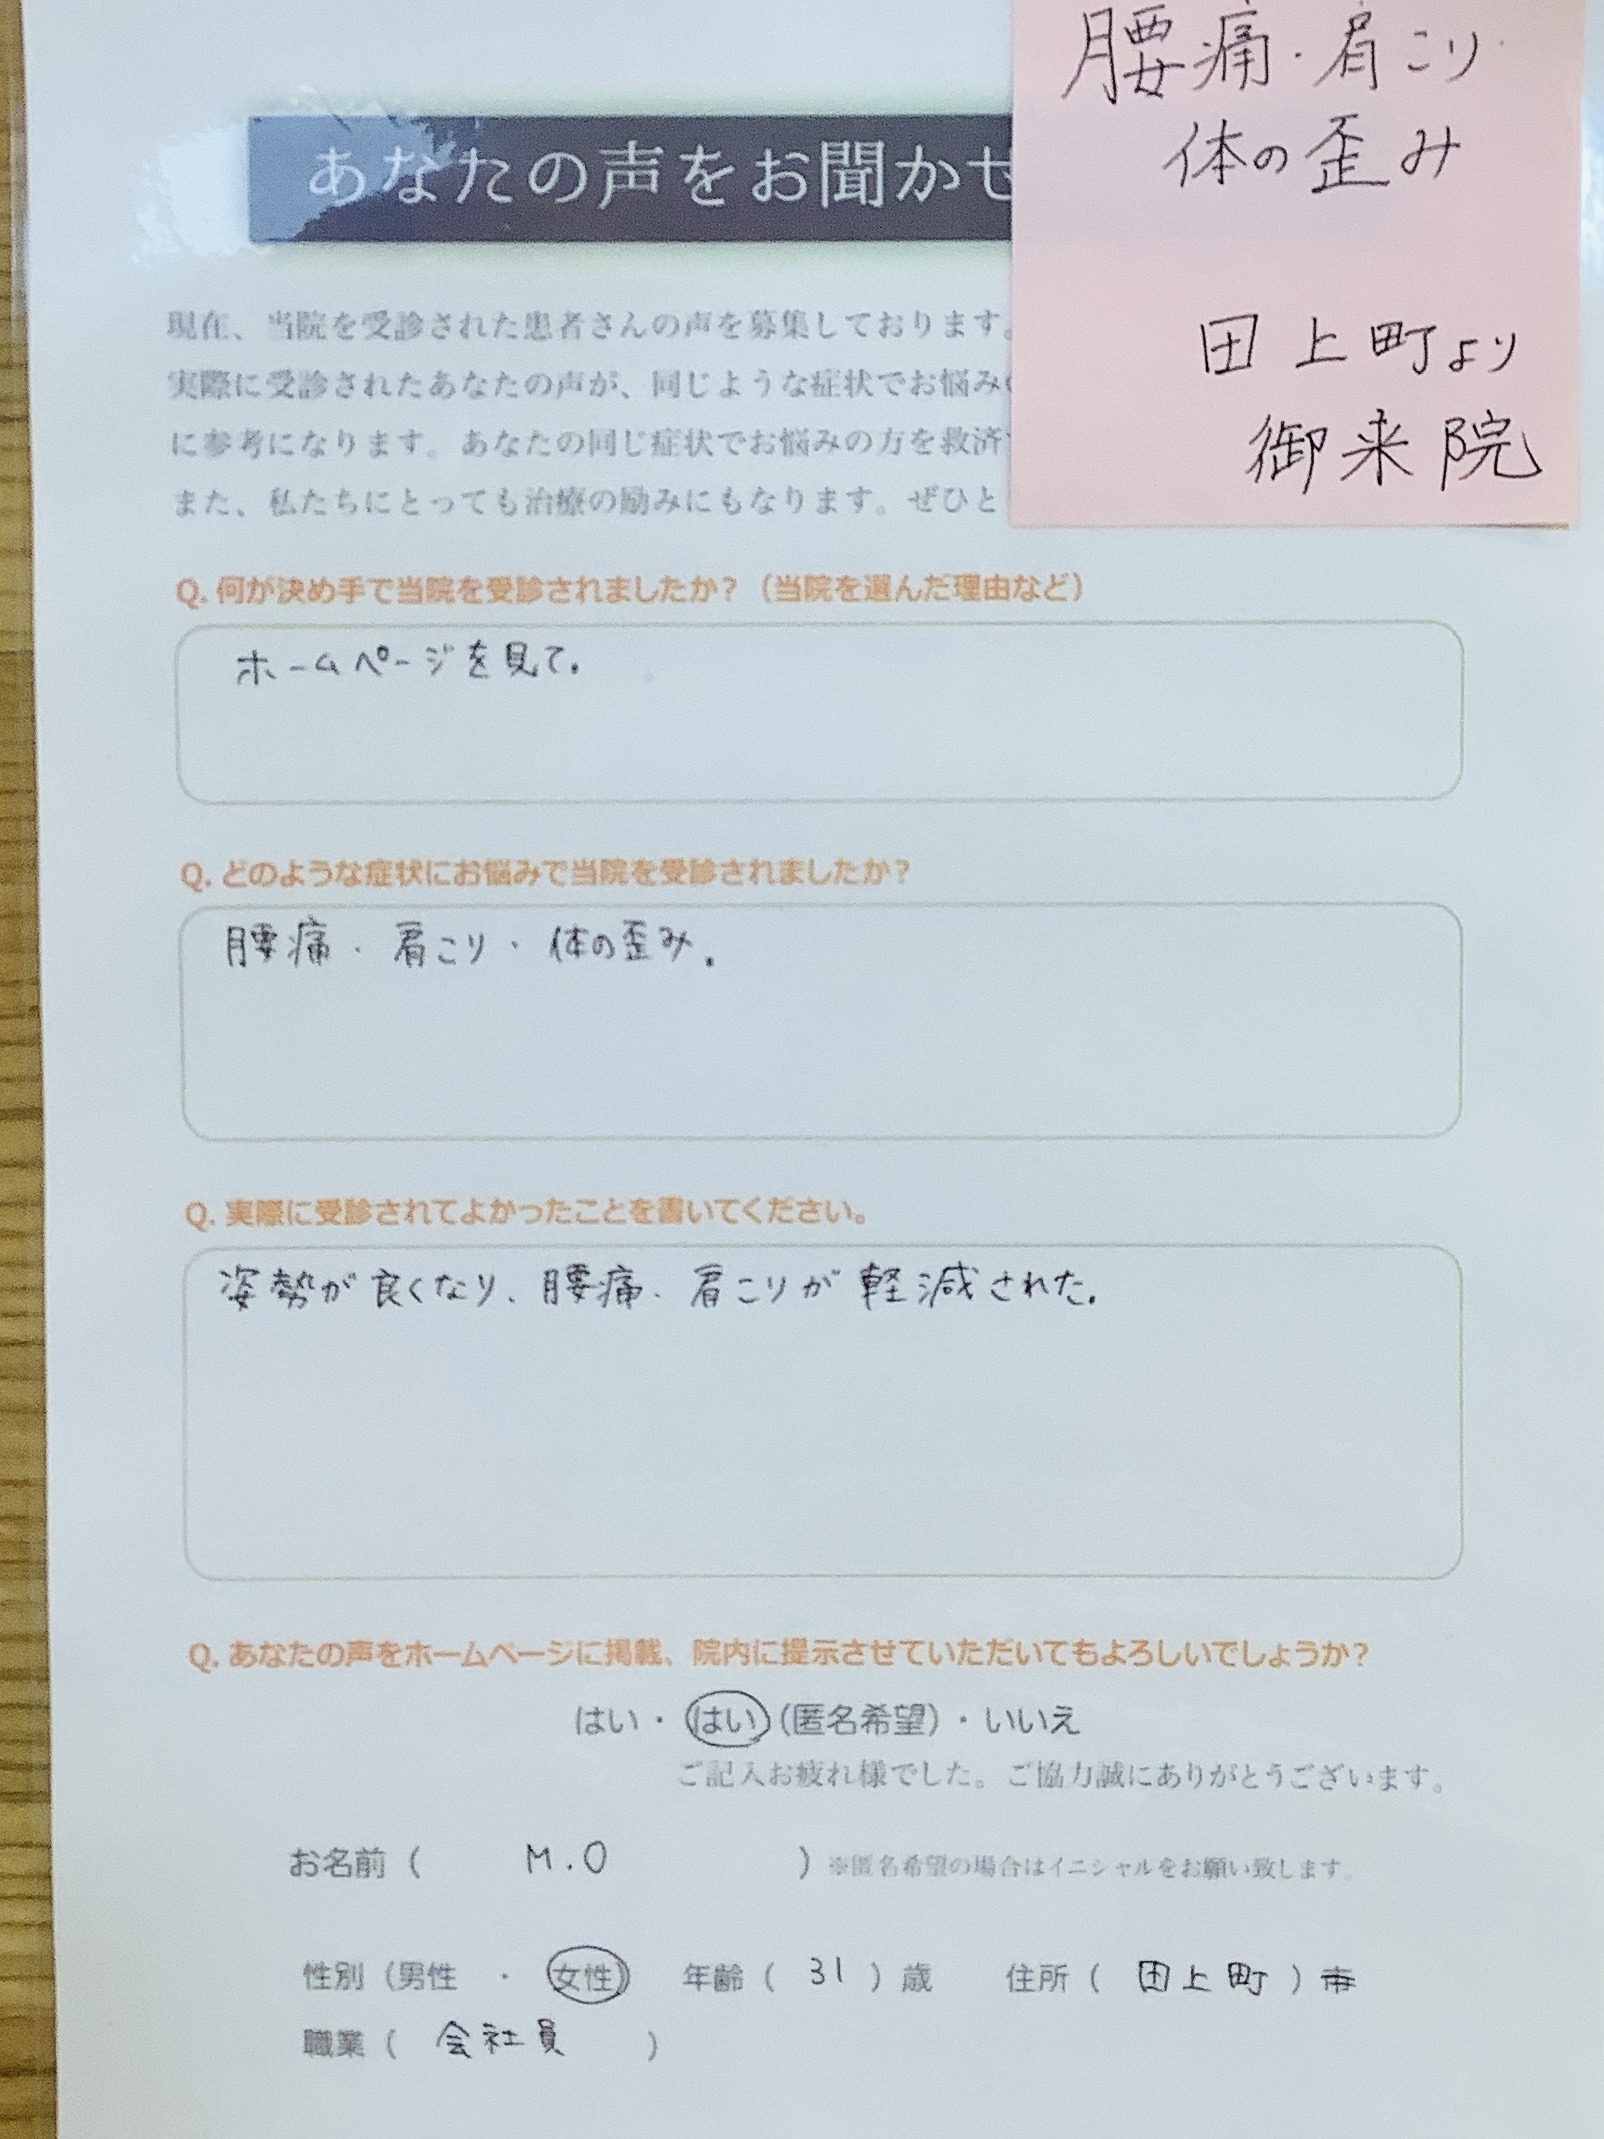 腰痛・肩こり
体の歪み
田上町より
御来院
あなたの声をお聞かせ
現在、当院を受診された患者さんの声を募集しております。
実際に受診されたあなたの声が、同じような症状でお悩み
に参考になります。あなたの同じ症状でお悩みの方を救済
また、私たちにとっても治療の励みにもなります。ぜひと
Q. 何が決め手で当院を受診されましたか？（当院を選んだ理由など）
ホームページを見て。
Q. どのような症状にお悩みで当院を受診されましたか？
腰痛・肩こり・体の歪み。
Q. 実際に受診されてよかったことを書いてください。
姿勢が良くなり、腰痛・肩こりが軽減された。
Q. あなたの声をホームページに掲載、院内に提示させていただいてもよろしいでしょうか？
はい・はい（匿名希望）・いいえ
ご記入お疲れ様でした。ご協力誠にありがとうございます。
お名前（ M.O ）※匿名希望の場合はイニシャルをお願い致します。
性別（男性 ・ 女性） 年齢（ 31 ）歳 住所（ 田上町 ）市
職業（ 会社員 ）